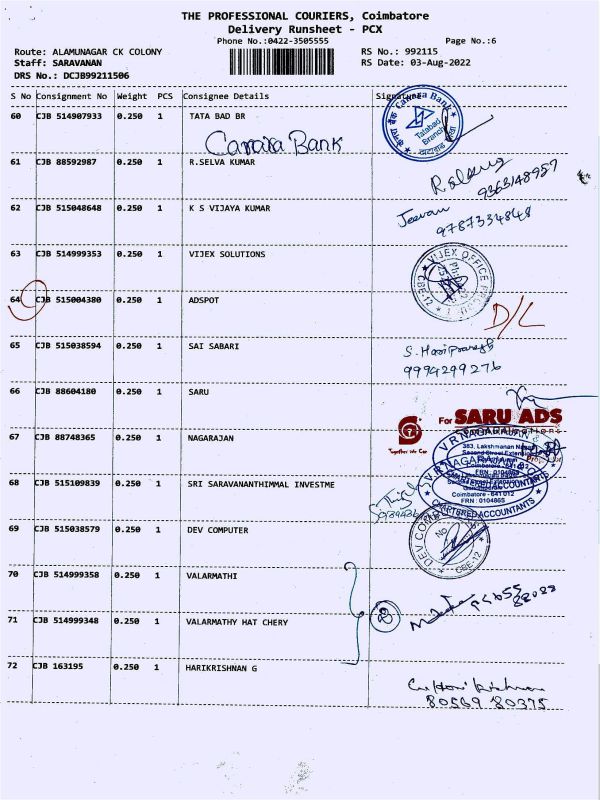 THE PROFESSIONAL COURIERS, Coimbatore
Delivery Runsheet - PCX
Phone No.:0422-3505555 Page No.:6
Route: ALAMUNAGAR CK COLONY RS No.: 992115
Staff: SARAVANAN RS Date: 03-Aug-2022
DRS No.: DCJB99211506
S No Consignment No Weight PCS Consignee Details Signature
60 CJB 514907933 0.250 1 TATA BAD BR
Canara Bank
Canara Bank
Tatabad
Branch
61 CJB 88592987 0.250 1 R.SELVA KUMAR
9363148957
62 CJB 515048648 0.250 1 K S VIJAYA KUMAR
Jeevan
9787334848
63 CJB 514999353 0.250 1 VIJEX SOLUTIONS
VIJEX OFFICE
CBE-12
64 CJB 515004380 0.250 1 ADSPOT
D/L
65 CJB 515038594 0.250 1 SAI SABARI
9994299276
66 CJB 88604180 0.250 1 SARU
For SARU ADS
Together We Can
67 CJB 88748365 0.250 1 NAGARAJAN
V R NAGARAJAN &
383, Lakshmanan Nagar
Second Street Extension
Coimbatore - 641 012
FRN : 0104865
68 CJB 515109839 0.250 1 SRI SARAVANANTHIMMAL INVESTME
Coimbatore - 641 012
FRN : 0104865
CHARTERED ACCOUNTANTS
69 CJB 515038579 0.250 1 DEV COMPUTER
DEV COM
No
CBE-12
70 CJB 514999358 0.250 1 VALARMATHI
71 CJB 514999348 0.250 1 VALARMATHY HAT CHERY
2
72 CJB 163195 0.250 1 HARIKRISHNAN G
80569 80375